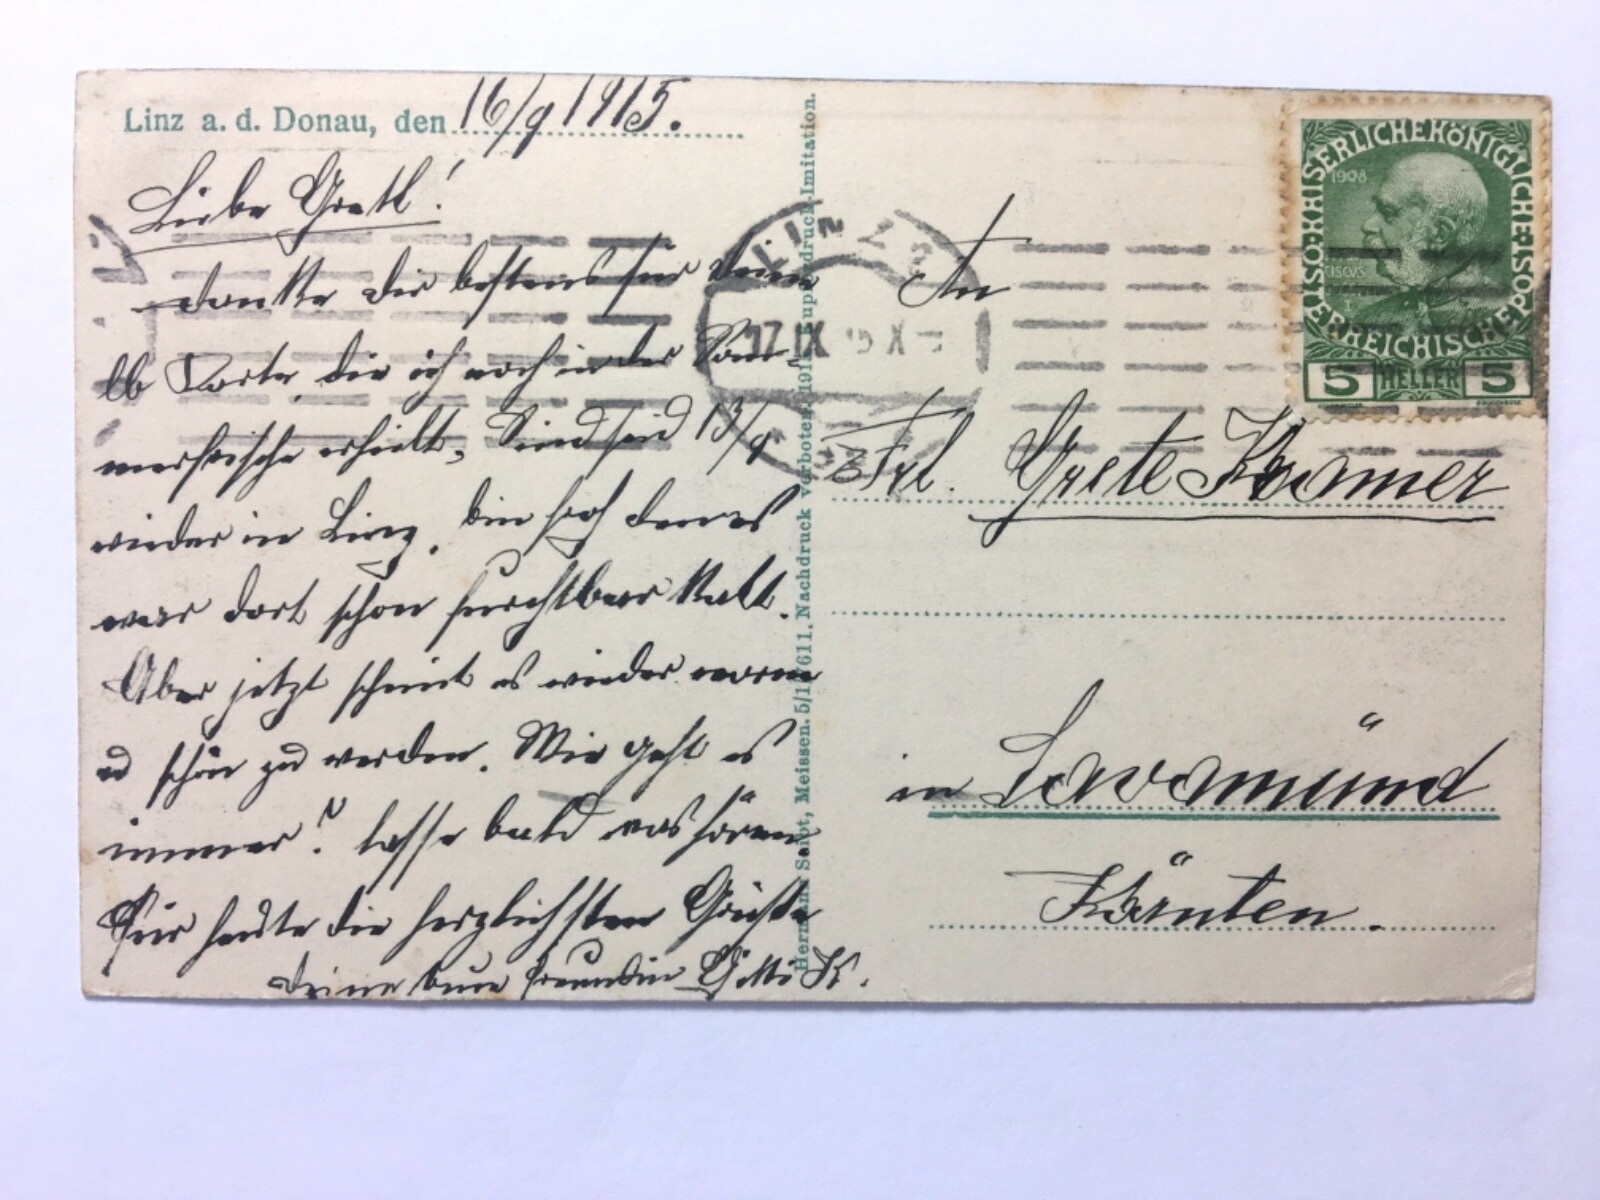 Linz a. d. Donau, den 16/9 1915.
Liebe Gretl!
danke dir bestens für deine
lb Karte, die ich noch in der Som-
merfrische erhielt. Sind seid 13/9
wieder in Linz, bin froh denn es
war dort schon furchtbar kalt.
Aber jetzt scheint es wieder warm
u schön zu werden. Wie geht es
immer? lasse bald was hören.
Für heute die herzlichsten Grüße
deine Freundin K.
Hermann Seibt, Meissen. Nachdruck verboten. Kupferdruck-Imitation.
LINZ
17 IX 15 X
KAISERLICHE KÖNIGLICHE ÖSTERREICHISCHE POST
1908
5 HELLER 5
An
Frl. Grete Kramer
in Lavamünd
Kärnten.